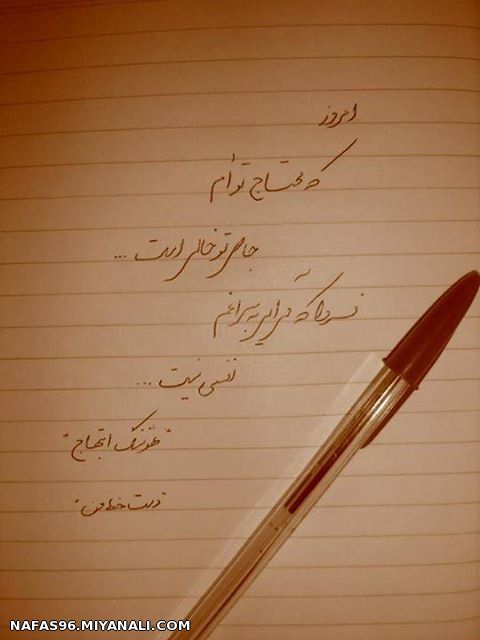 امروز
که محتاج توأم
جای تو خالی است ...
فردا که می آیی به سراغم
نفسی نیست ...
"هوشنگ ابتهاج"
"دست خط من"
NAFAS96.MIYANALI.COM